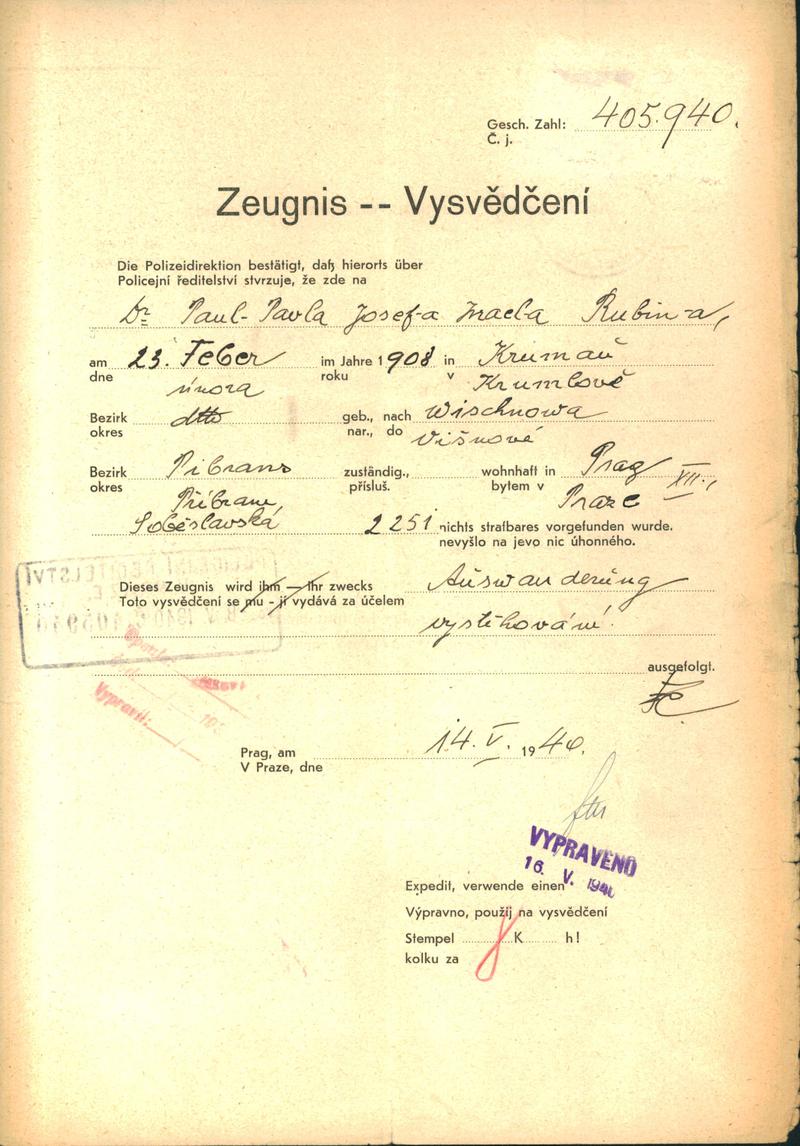 Gesch. Zahl: 405.940.
Č. j.
Zeugnis -- Vysvědčení
Die Polizeidirektion bestätigt, daß hierorts über
Policejní ředitelství stvrzuje, že zde na
Dr Paul- Pavla Josef-a Israel-a Rubin-a,
am 23. Feber im Jahre 1908 in Krumau
dne února roku v Krumlově
Bezirk dtto geb., nach Wischnowa
okres nar., do Višňové
Bezirk Pibrans zuständig., wohnhaft in Prag XII.,
okres Příbram, přísluš. bytem v Praze
Soběslavská 2251 nichts strafbares vorgefunden wurde.
nevyšlo na jevo nic úhonného.
Dieses Zeugnis wird ihm — ihr zwecks Auswanderung
Toto vysvědčení se mu - jí vydává za účelem
vystěhování.
ausgefolgt.
Prag, am 14. V. 1940.
V Praze, dne
VYPRAVENO
16. V. 1940
Expedit, verwende einen
Výpravno, použij na vysvědčení
Stempel K h!
kolku za
Vypravil: